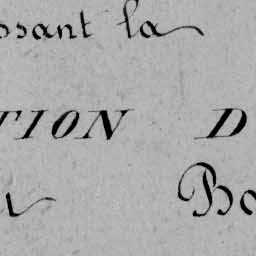 ssant la
TION D
Bo